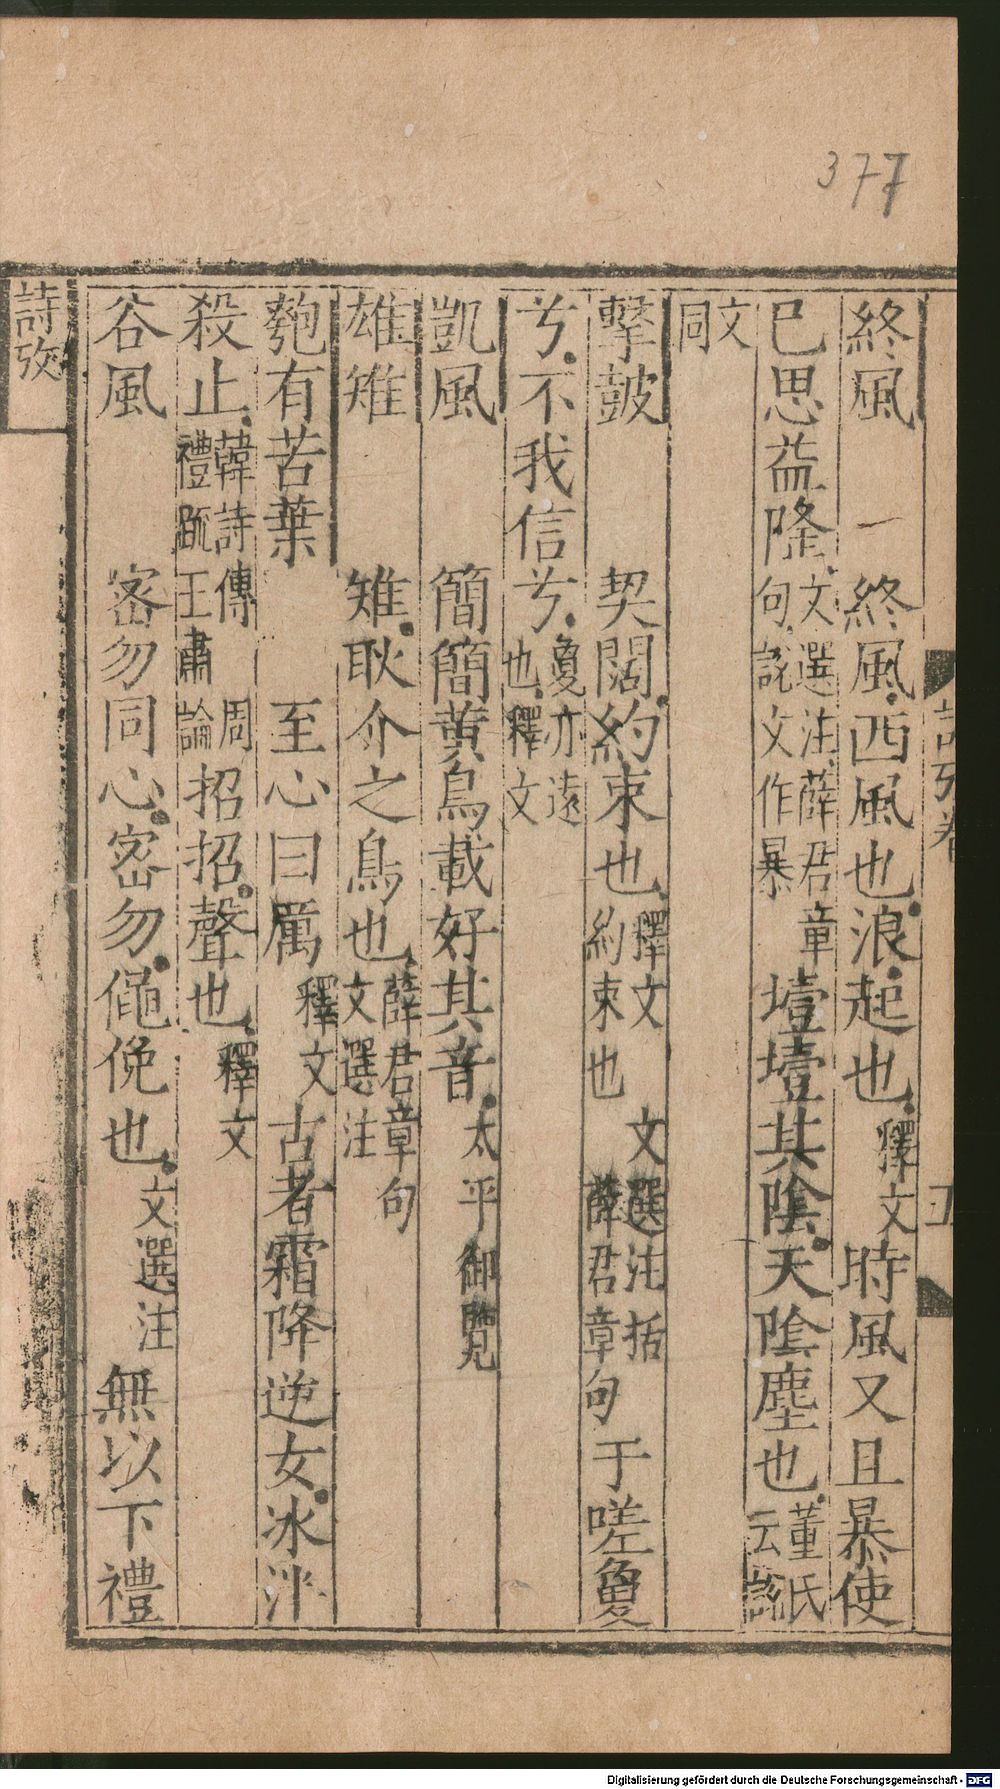 377
終風 終風西風也浪起也釋文時風又且暴使
已思益隆文選注薛君章句說文作暴㙪㙪其陰天陰塵也董氏云說
文同
擊鼓 契闊約束也釋文約束也文選注括薛君章句于嗟敻
兮不我信兮敻亦遠也釋文
凱風 簡簡黄鳥載好其音太平御覽
雄雉 雉耿介之鳥也薛君章句文選注
匏有苦葉 至心曰厲釋文古者霜降逆女冰泮
殺止韓詩傳周禮疏王肅論招招聲也釋文
谷風 密勿同心密勿僶俛也文選注無以下禮
詩攷
Digitalisierung gefördert durch die Deutsche Forschungsgemeinschaft - DFG